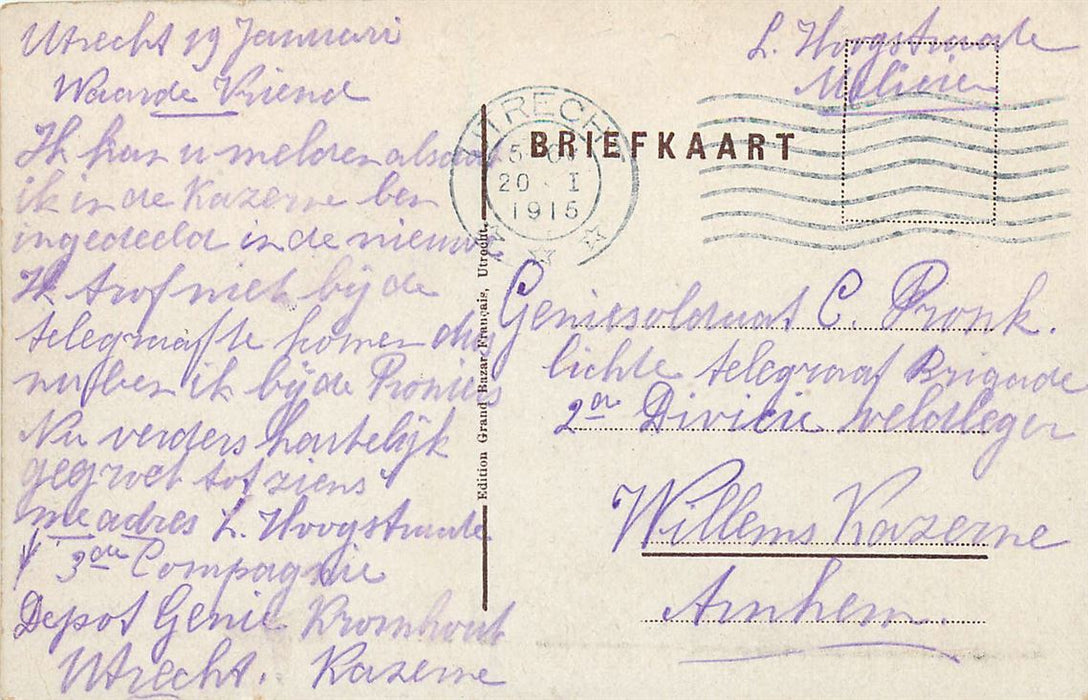 Utrecht 19 Januari
Waarde Vriend
Ik kan u melden alsdat
ik in de Kazerne ben
ingedeeld in de nieuwe
Ik trof niet bij de
telegraafte komen dus
nu ben ik bij de Pioniers
Nu verders hartelijk
gegroet tot ziens
me adres L. Hoogstraate
3de Compagnie
Depot Genie Kromhout
Utrecht. Kazerne
L. Hoogstraate
Milicien
UTRECHT
20 I
1915
BRIEFKAART
Edition Grand Bazar Français, Utrecht.
Geniesoldaat C. Pronk.
lichte telegraaf Brigade
2de Divicie veldleger
Willems Kazerne
Arnhem.